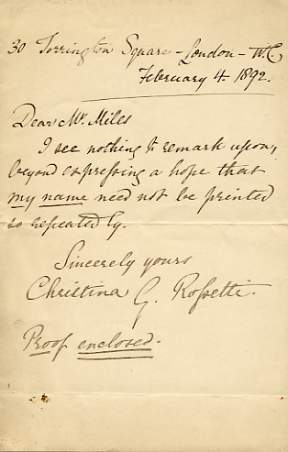 30 Torrington Square - London - W.C.
February 4. 1892.
Dear Mr. Miles
I see nothing to remark upon,
beyond expressing a hope that
my name need not be printed
so repeatedly.
Sincerely yours
Christina G. Rossetti.
Proof enclosed.